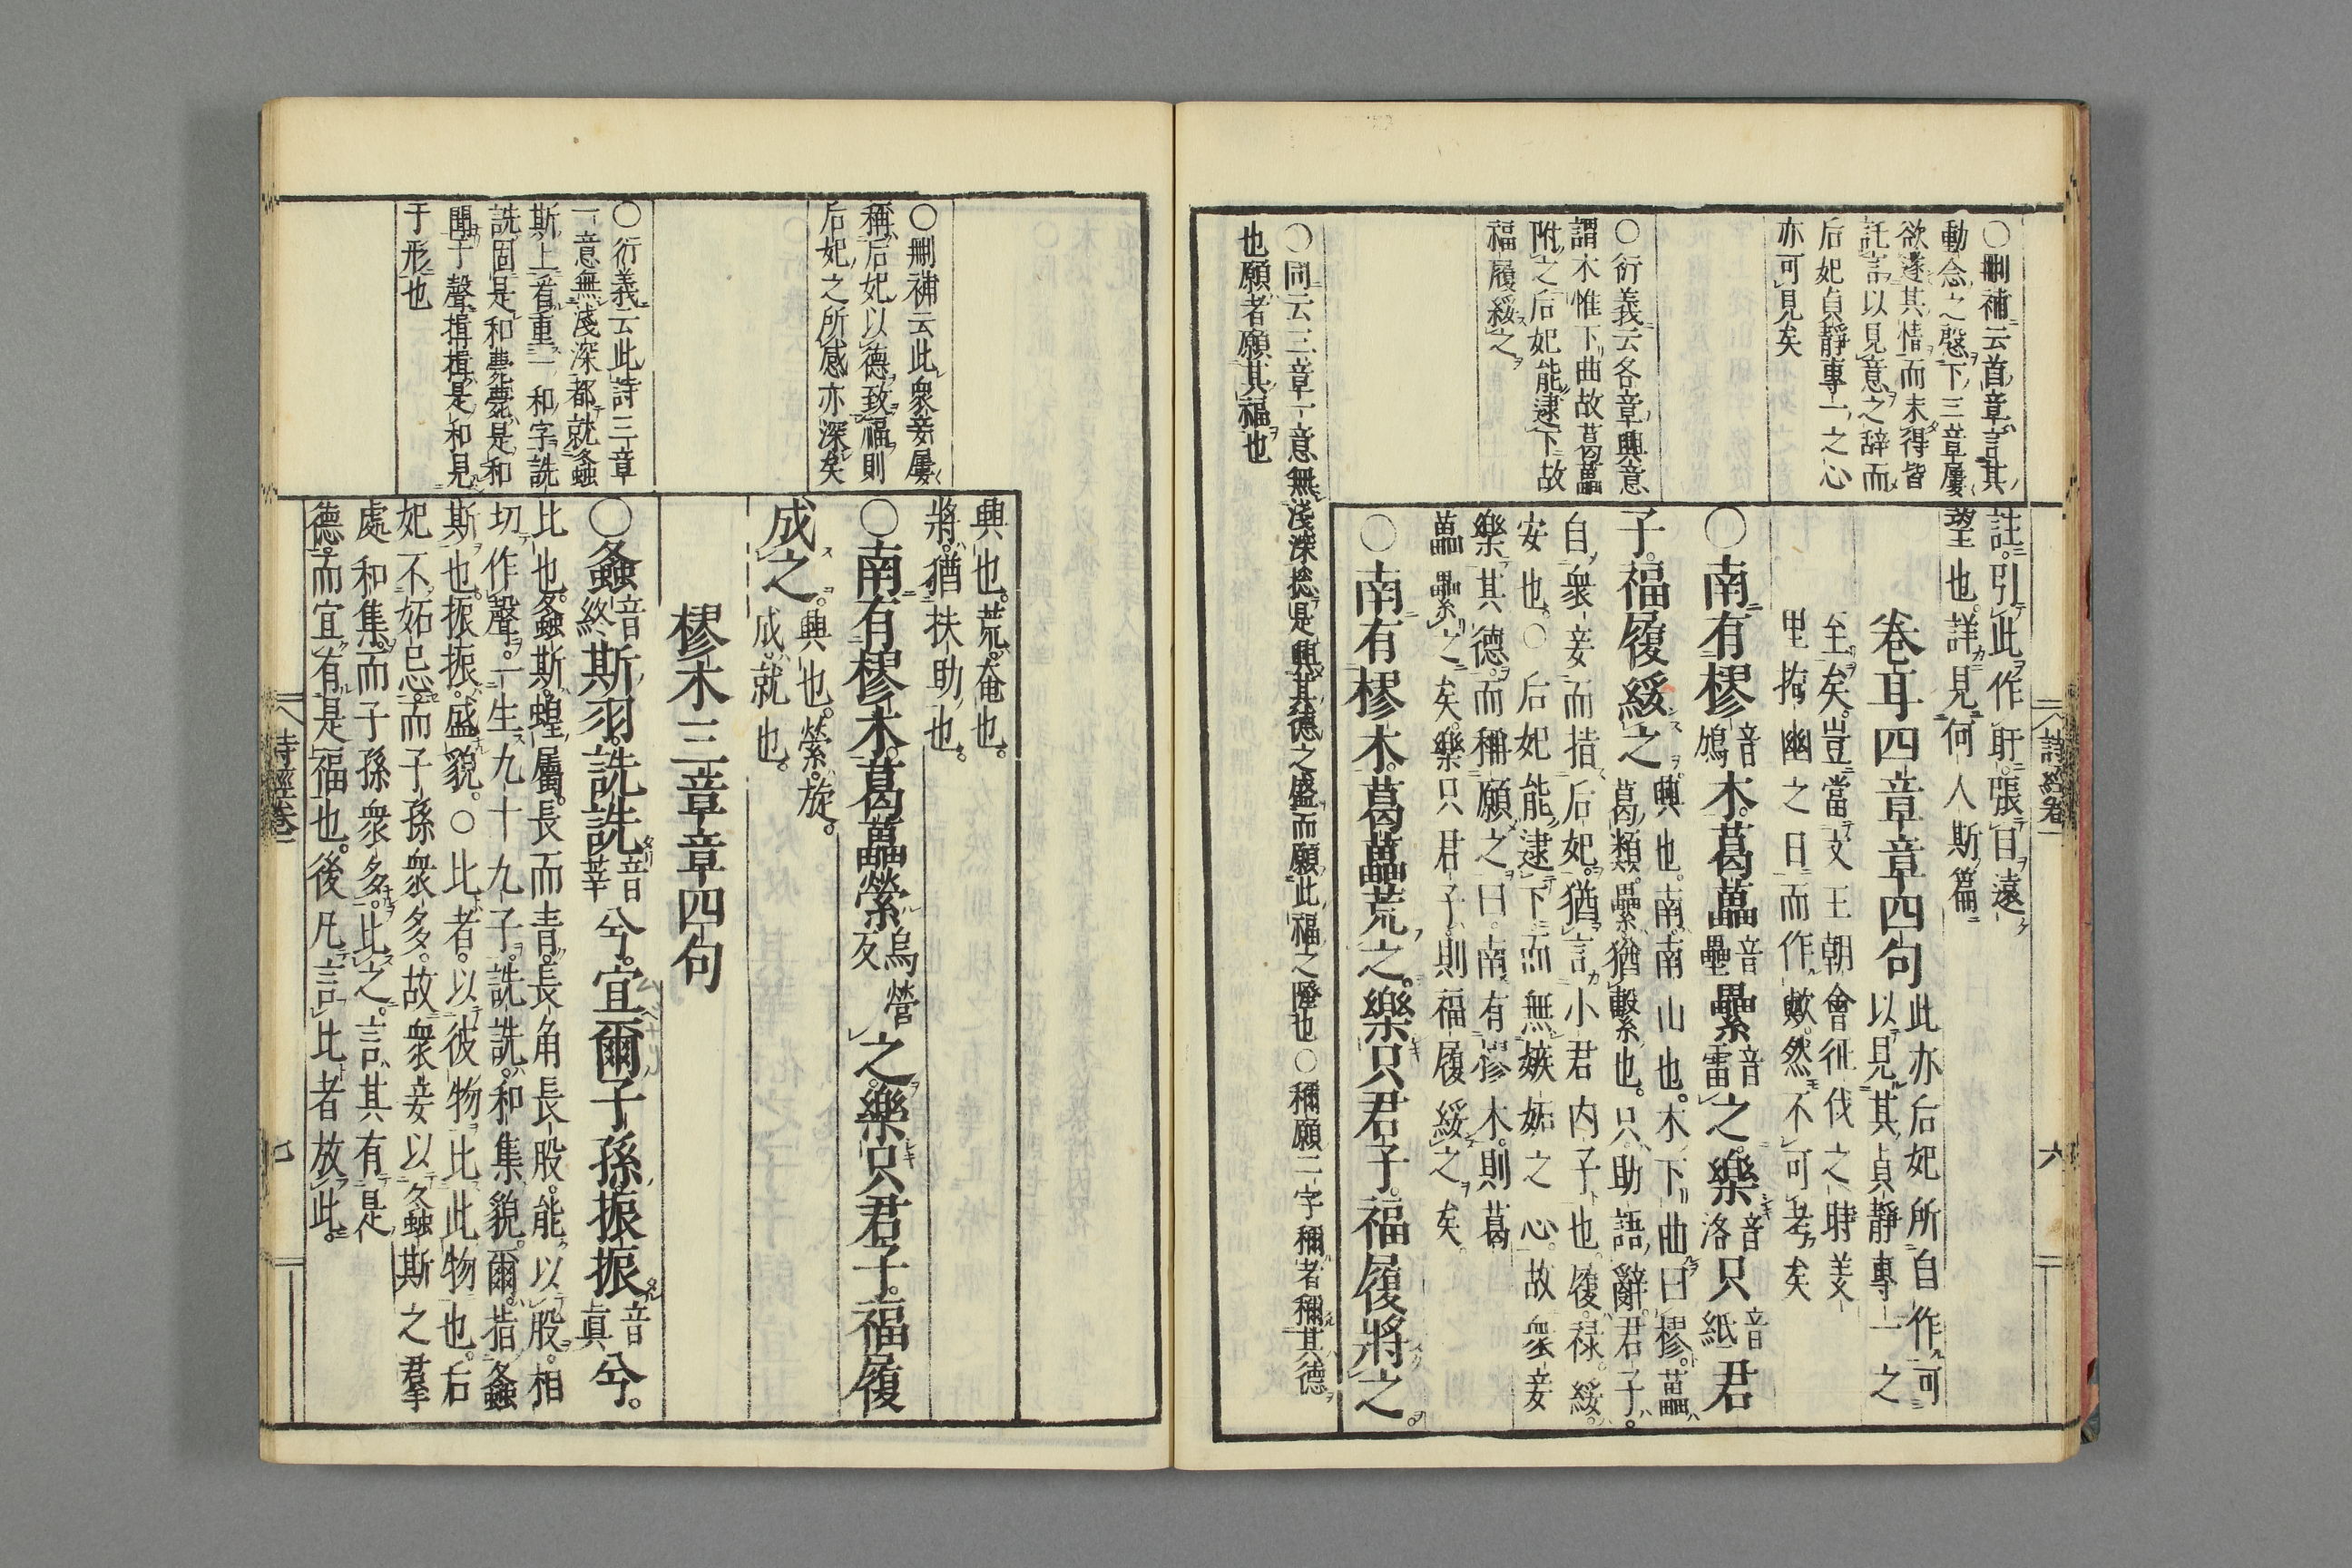 ○刪補云首章言其
動念之慇下三章屢
欲遂其情而未得皆
託言以見意之辞而
后妃貞靜專一之心
亦可見矣
○衍義云各章興意
謂木惟下曲故葛藟
附之后妃能逮下故
福履綏之
○同云三章一意無淺深捴是興其德之盛而願此福之隆也○稱願二字稱者稱其德
也願者願其福也
註引此作盱張目遠
望也詳見何人斯篇
卷耳四章章四句
此亦后妃所自作可
以見其貞靜專一之
至矣豈當文王朝會征伐之時羑
里拘幽之日而作歟然不可考矣
○南有樛音鳩木葛藟音壘纍音雷之樂音洛只音紙君
子福履綏之
興也南南山也木下曲曰樛藟
葛類纍猶繫也只助語辭君子
自衆妾而指后妃猶言小君内子也履祿綏
安也○后妃能逮下而無嫉妬之心故衆妾
樂其德而稱願之曰南有樛木則葛
藟纍之矣樂只君子則福履綏之矣
○南有樛木葛藟荒之樂只君子福履將之
詩經卷一
六
○刪補云此衆妾屢
稱后妃以德致福則
后妃之所感亦深矣
○衍義云此詩三章
一意無淺深都就螽
斯上看重一和字詵
詵固是和薨薨是和
聞于聲揖揖是和見
于形也
興也荒奄也
將猶扶助也
○南有樛木葛藟縈烏營反之樂只君子福履
成之
興也縈旋
成就也
樛木三章章四句
○螽音終斯羽詵詵音莘兮宜爾子孫振振音眞兮
比也螽斯蝗屬長而青長角長股能以股相
切作聲一生九十九子詵詵和集貌爾指螽
斯也振振盛貌○比者以彼物比此物也后
妃不妬忌而子孫衆多故衆妾以螽斯之羣
處和集而子孫衆多比之言其有是
德而宜有是福也後凡言比者放此
詩經卷一
七